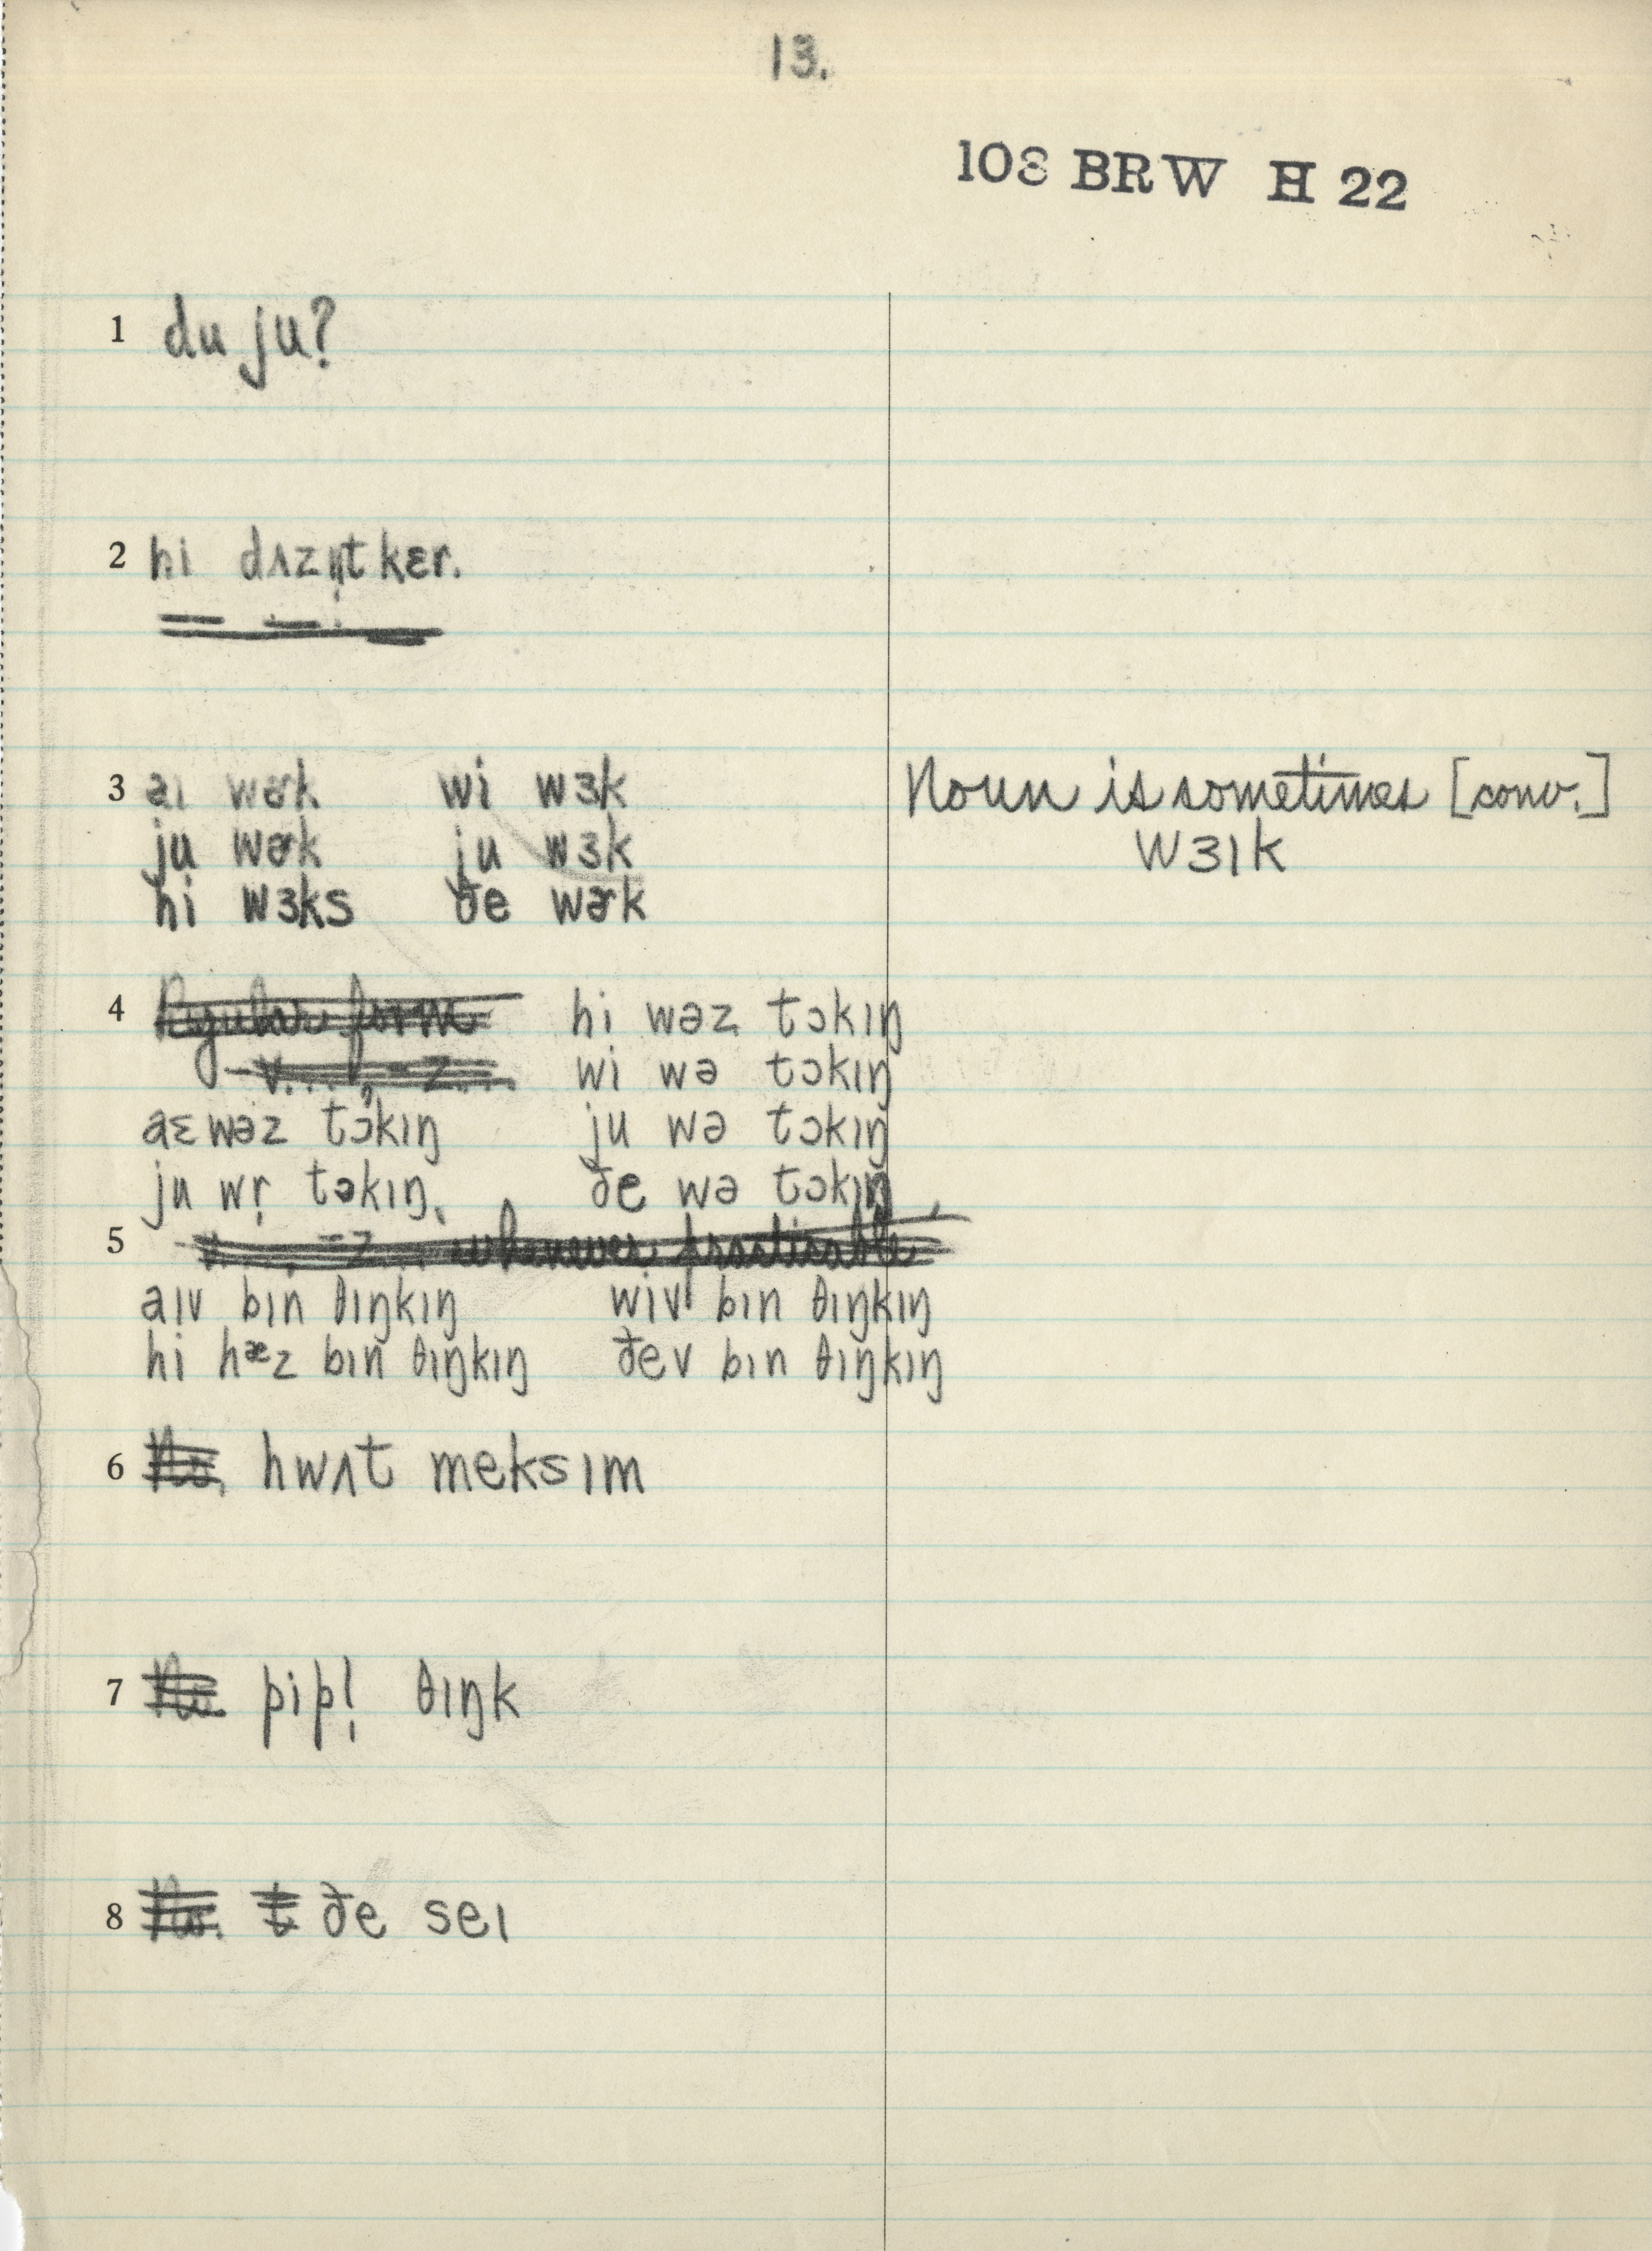 13.
108 BRW H 22
1 du ju?
2 hi dʌzn̩t kɛr.
3 aɪ wɚk wi wɜk Noun is sometimes [conv.]
ju wɚk ju wɜk wɜɪk
hi wɜks ðe wɚk
4 Regular form hi wəz tɔkɪŋ
wi wə tɔkɪŋ
aɛ wəz tɔkɪŋ ju wə tɔkɪŋ
ju wr̩ tɔkɪŋ. ðe wə tɔkɪŋ
5 whenever practicable
aɪv bɪn θɪŋkɪŋ wiv bɪn θɪŋkɪŋ
hi hæz bɪn θɪŋkɪŋ ðev bɪn θɪŋkɪŋ
6 No. hwʌt meks ɪm
7 No pipl̩ θɪŋk
8 No. t ðe seɪ